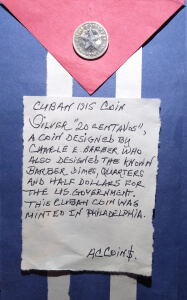 CUBAN 1915 COIN
SILVER "20 CENTAVOS",
A COIN DESIGNED BY
CHARLE E. BARBER WHO
ALSO DESIGNED THE KNOWN
BARBER DIMES, QUARTERS
AND HALF DOLLARS FOR
THE US. GOVERNMENT.
THIS CUBAN COIN WAS
MINTED IN PHILADELPHIA.
ACCOIN$.